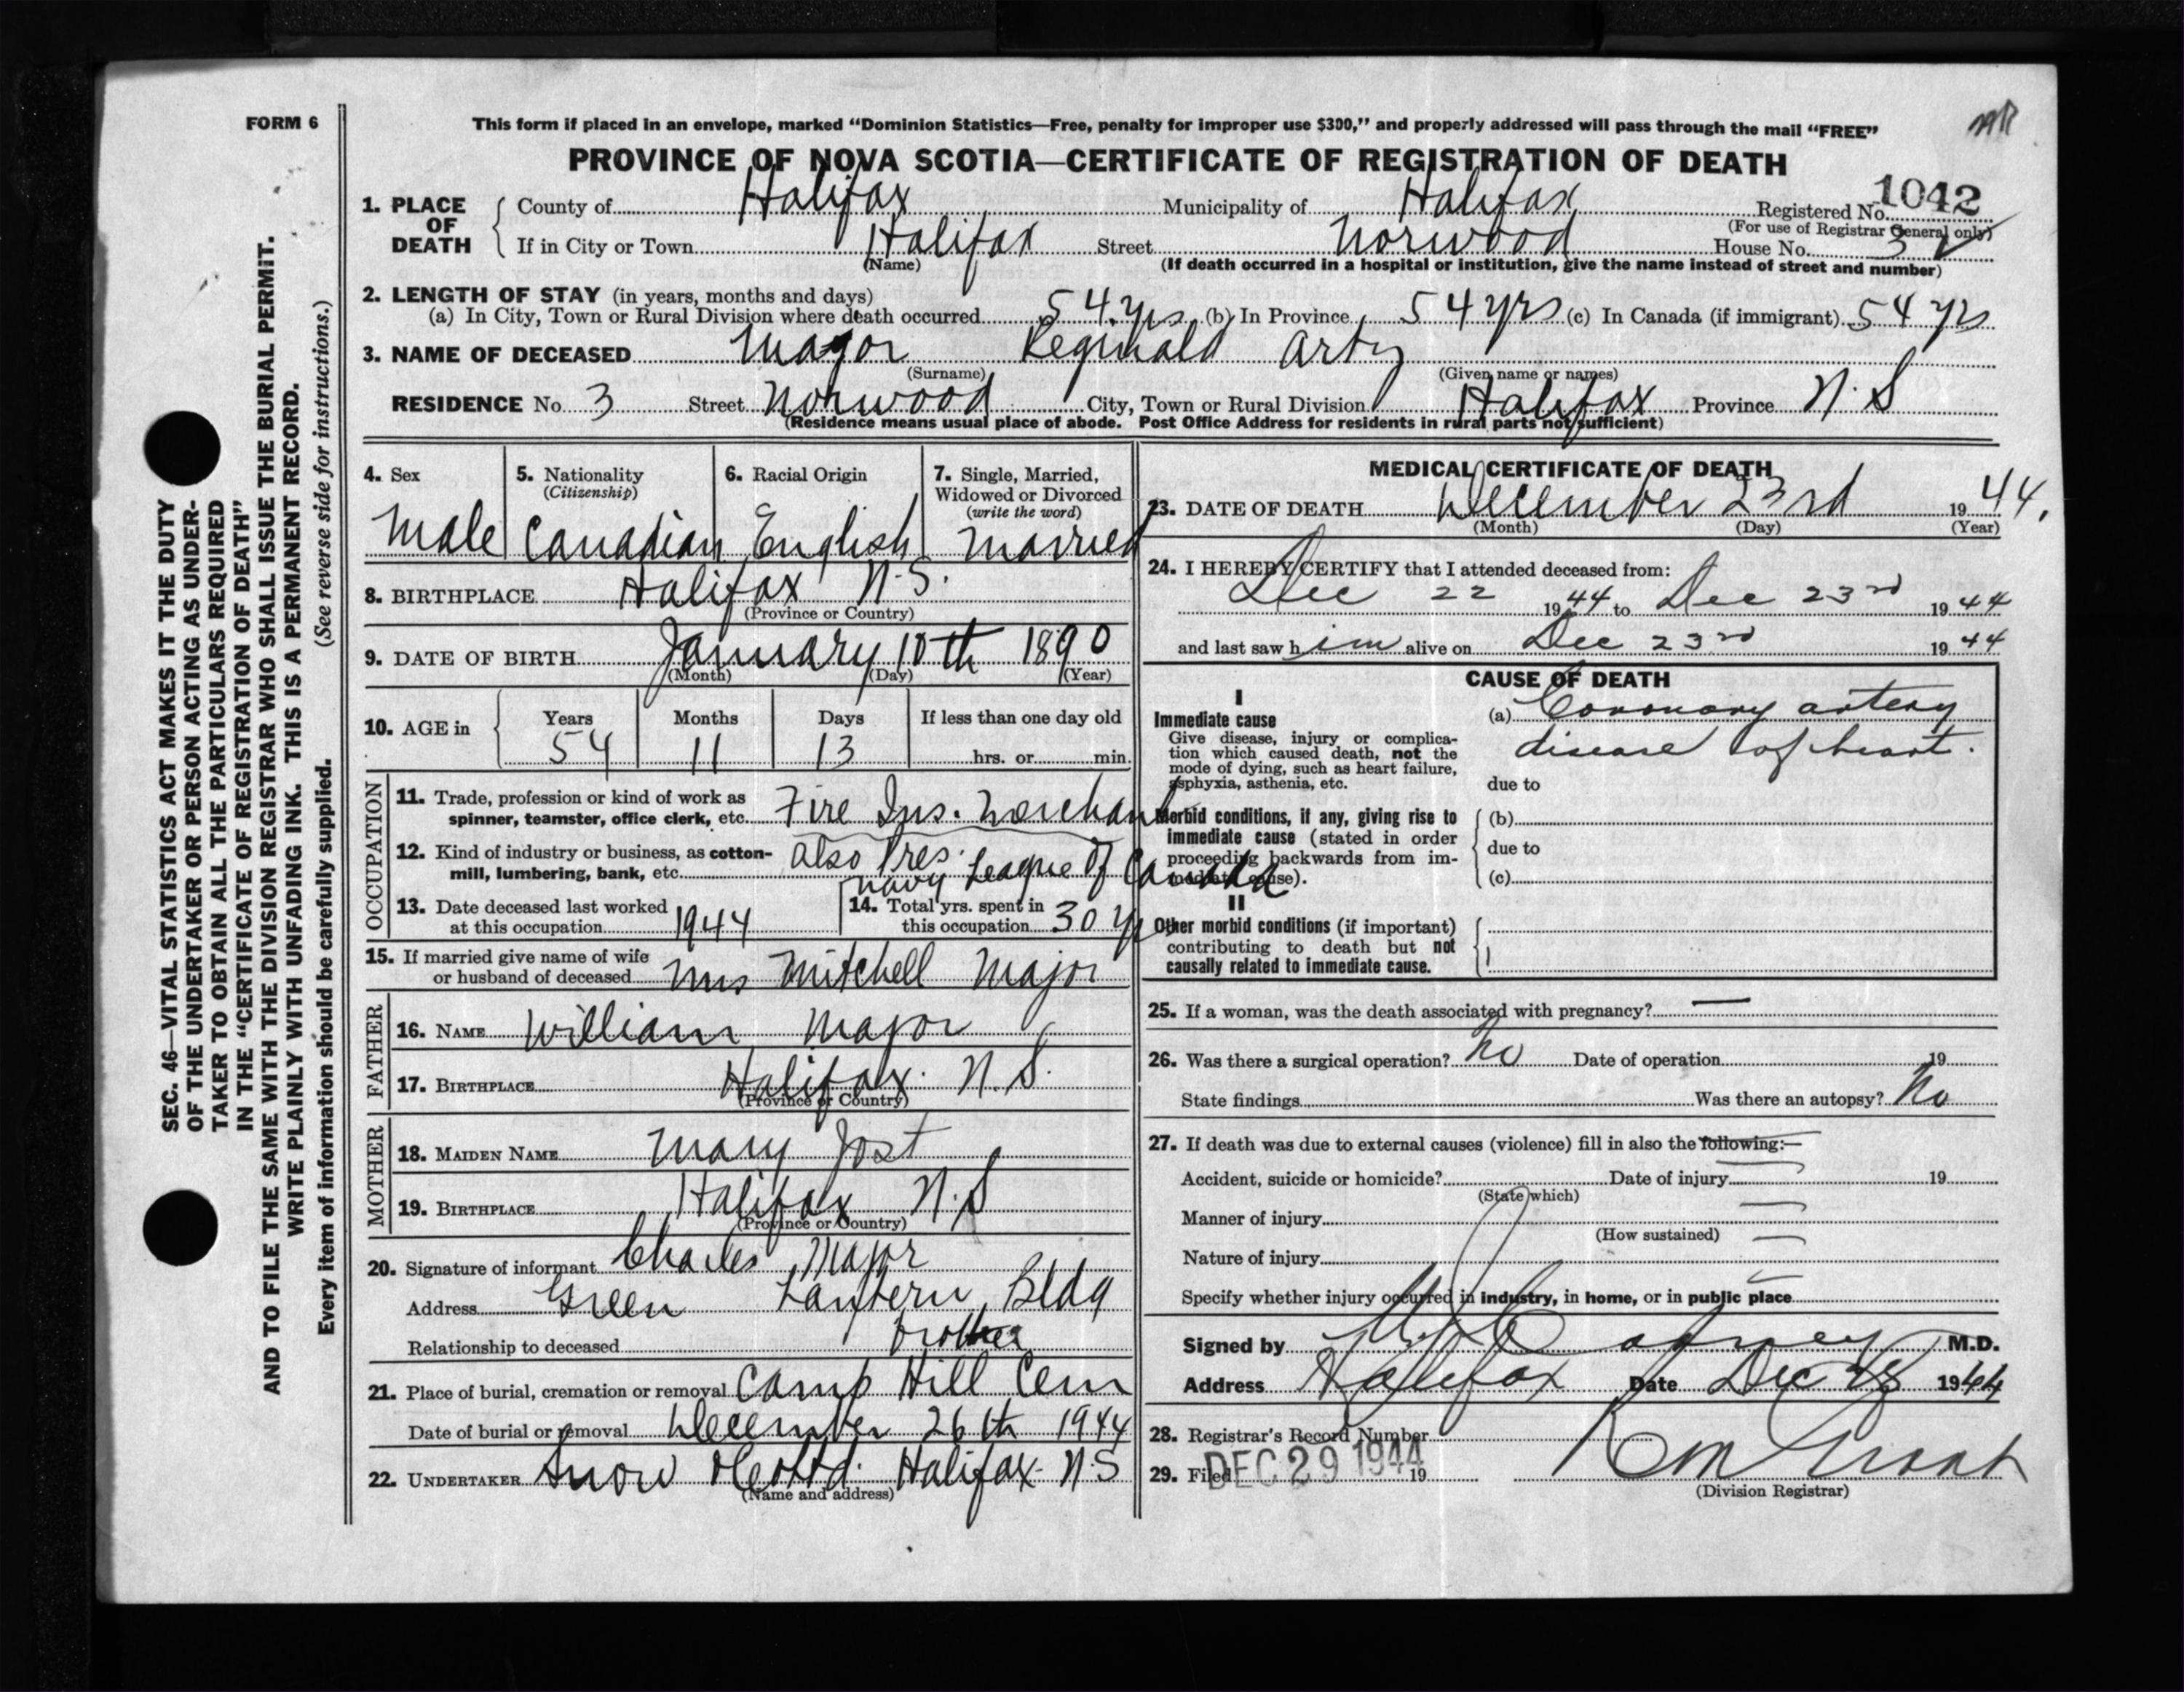 FORM 6
This form if placed in an envelope, marked “Dominion Statistics—Free, penalty for improper use $300,” and properly addressed will pass through the mail “FREE”
PROVINCE OF NOVA SCOTIA—CERTIFICATE OF REGISTRATION OF DEATH
1042
1. PLACE OF DEATH
County of Halifax Municipality of Halifax Registered No.
(For use of Registrar General only)
If in City or Town Halifax Street Norwood House No. 3
(Name) (If death occurred in a hospital or institution, give the name instead of street and number)
2. LENGTH OF STAY (in years, months and days)
(a) In City, Town or Rural Division where death occurred 54 yrs (b) In Province 54 yrs (c) In Canada (if immigrant) 54 yrs
3. NAME OF DECEASED Major Reginald
(Surname) (Given name or names)
RESIDENCE No. 3 Street Norwood City, Town or Rural Division Halifax Province N.S
(Residence means usual place of abode. Post Office Address for residents in rural parts not sufficient)
4. Sex
Male
5. Nationality
(Citizenship)
Canadian
6. Racial Origin
English
7. Single, Married,
Widowed or Divorced
(write the word)
Married
8. BIRTHPLACE Halifax N.S.
(Province or Country)
9. DATE OF BIRTH January 10th 1890
(Month) (Day) (Year)
10. AGE in
Years Months Days If less than one day old
54 11 13 hrs. or min.
OCCUPATION
11. Trade, profession or kind of work as
spinner, teamster, office clerk, etc. Fire Ins. Merchant
12. Kind of industry or business, as cotton-
mill, lumbering, bank, etc. also Pres. Navy League Of Canada
13. Date deceased last worked
at this occupation 1944
14. Total yrs. spent in
this occupation 30 yr
15. If married give name of wife
or husband of deceased Mrs Mitchell Major
FATHER
16. NAME William Major
17. BIRTHPLACE Halifax N.S.
(Province or Country)
MOTHER
18. MAIDEN NAME Mary Jost
19. BIRTHPLACE Halifax N.S
(Province or Country)
20. Signature of informant Charles Major
Address Green Lantern Bldg
Relationship to deceased brother
21. Place of burial, cremation or removal Camp Hill Cem
Date of burial or removal December 26th 1944
22. UNDERTAKER Snow Halifax N S
(Name and address)
MEDICAL CERTIFICATE OF DEATH
23. DATE OF DEATH December 23rd 1944.
(Month) (Day) (Year)
24. I HEREBY CERTIFY that I attended deceased from:
Dec 22 1944 to Dec 23rd 1944
and last saw him alive on Dec 23rd 1944
CAUSE OF DEATH
I
Immediate cause
Give disease, injury or complica-
tion which caused death, not the
mode of dying, such as heart failure,
asphyxia, asthenia, etc.
(a) Coronary artery
disease of heart.
due to
Morbid conditions, if any, giving rise to
immediate cause (stated in order
proceeding backwards from im-
mediate cause).
(b)
due to
(c)
II
Other morbid conditions (if important)
contributing to death but not
causally related to immediate cause.
25. If a woman, was the death associated with pregnancy? —
26. Was there a surgical operation? No Date of operation 19
State findings Was there an autopsy? No
27. If death was due to external causes (violence) fill in also the following:—
Accident, suicide or homicide? Date of injury 19
(State which)
Manner of injury
(How sustained)
Nature of injury
Specify whether injury occurred in industry, in home, or in public place
Signed by M.D.
Address Halifax Date Dec 28 1944
28. Registrar's Record Number
29. Filed DEC 29 1944 19
(Division Registrar)
SEC. 46—VITAL STATISTICS ACT MAKES IT THE DUTY
OF THE UNDERTAKER OR PERSON ACTING AS UNDER-
TAKER TO OBTAIN ALL THE PARTICULARS REQUIRED
IN THE “CERTIFICATE OF REGISTRATION OF DEATH”
AND TO FILE THE SAME WITH THE DIVISION REGISTRAR WHO SHALL ISSUE THE BURIAL PERMIT.
WRITE PLAINLY WITH UNFADING INK. THIS IS A PERMANENT RECORD.
Every item of information should be carefully supplied. (See reverse side for instructions.)